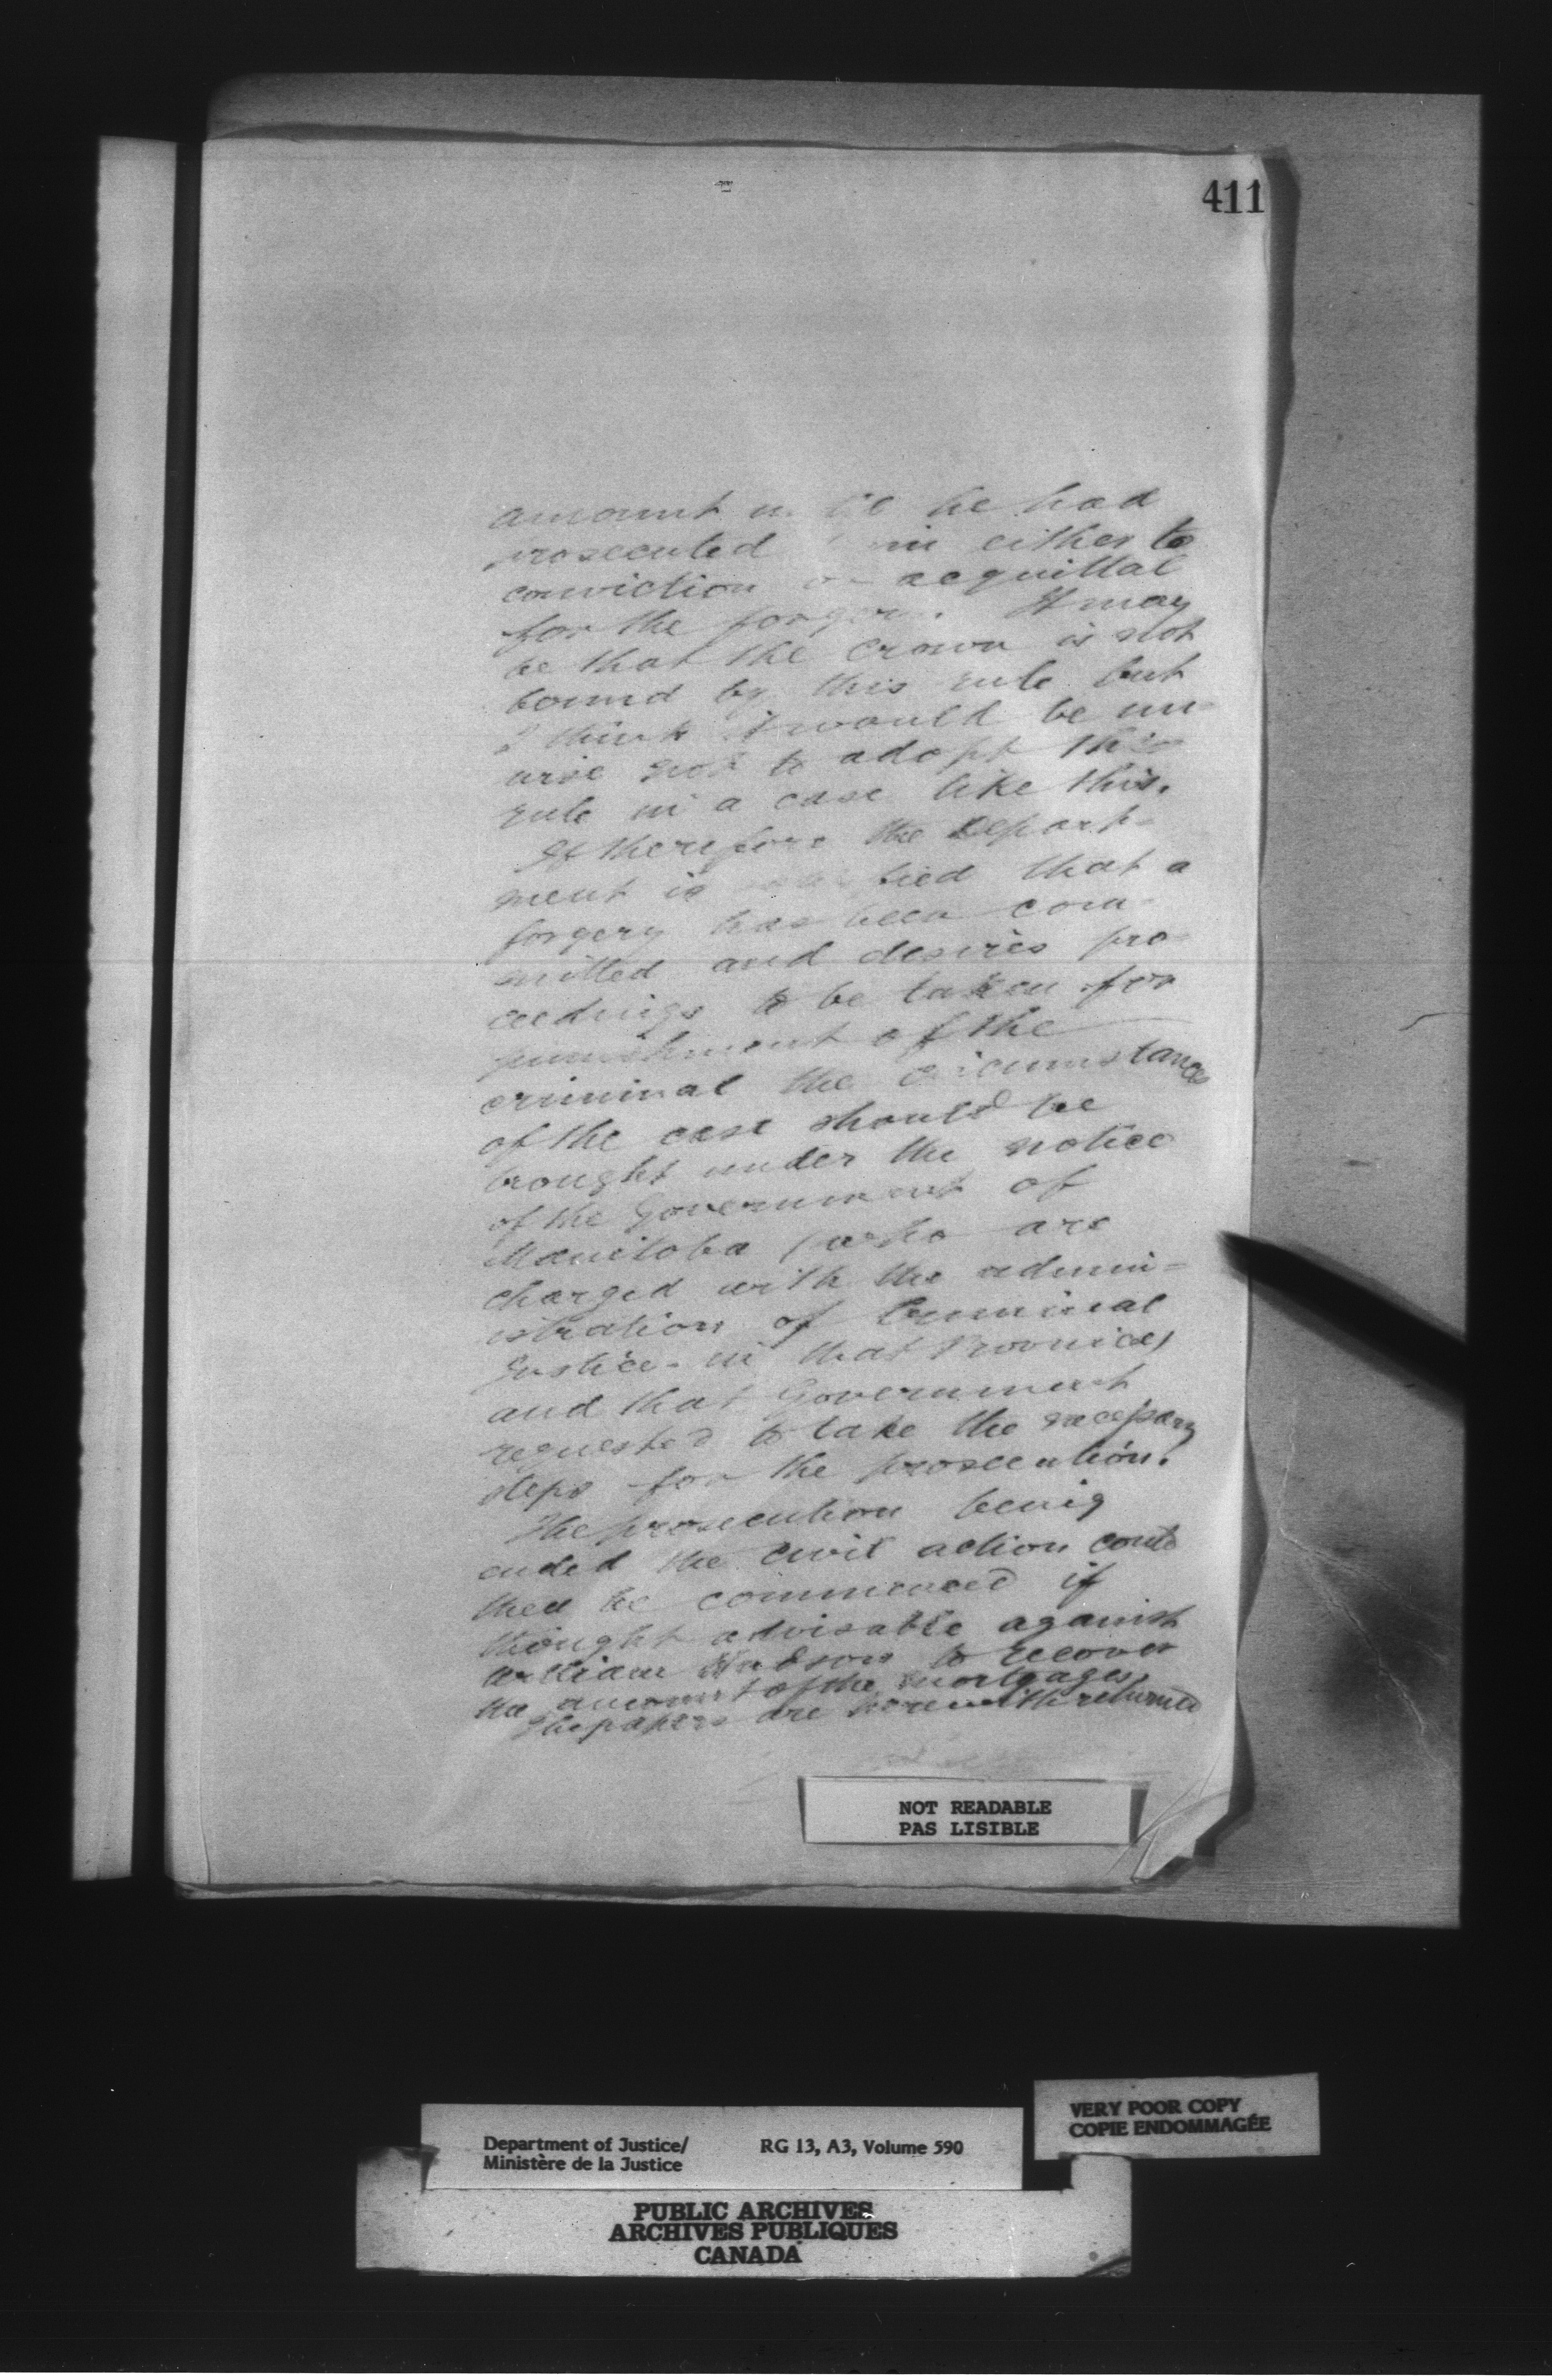 411
amount until he had
prosecuted him either to
conviction or acquittal
for the forgery. It may
be that the Crown is not
bound by this rule but
I think it would be un-
wise not to adopt this
rule in a case like this.
If therefore the Depart-
ment is satisfied that a
forgery has been com-
mitted and desires pro-
ceedings to be taken for
punishment of the
criminal the circumstances
of the case should be
brought under the notice
of the Government of
Manitoba (who are
charged with the admin-
istration of Criminal
Justice in that Province)
and that Government
requested to take the necessary
steps for the prosecution.
The prosecution being
ended the civil action could
then be commenced if
thought advisable against
William to recover
the amount of the mortgages.
The papers are herewith returned
NOT READABLE
PAS LISIBLE
VERY POOR COPY
COPIE ENDOMMAGÉE
Department of Justice/ RG 13, A3, Volume 590
Ministère de la Justice
PUBLIC ARCHIVES
ARCHIVES PUBLIQUES
CANADA